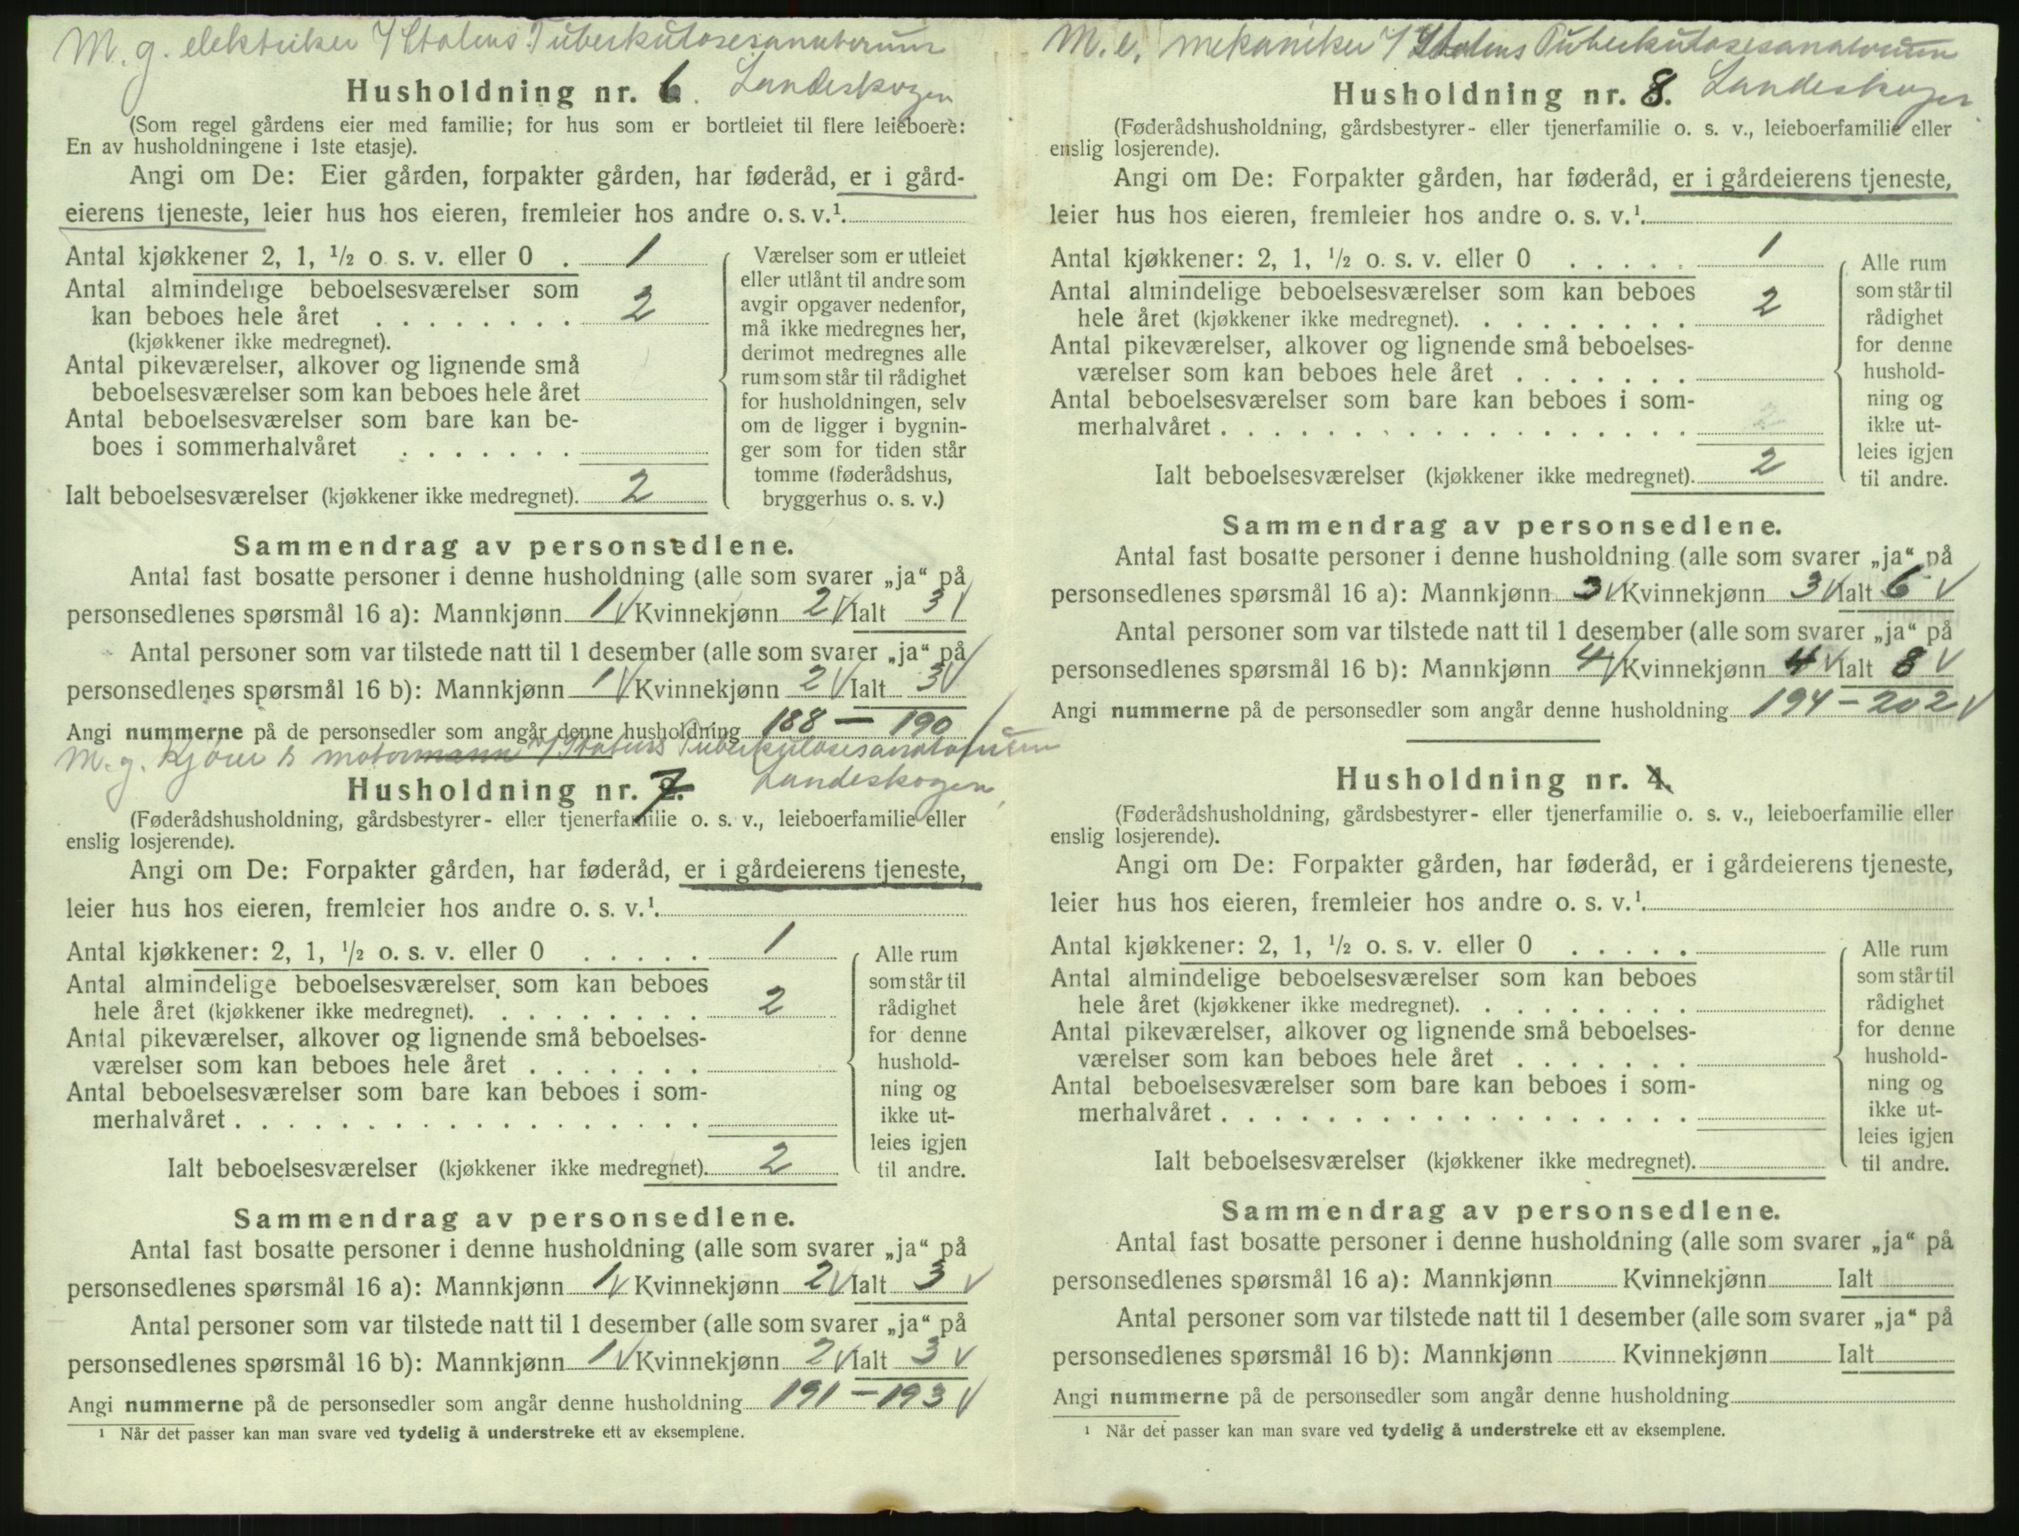 M. g. elektriker v/ Statens Tuberkulosesanatorium
Landeskogen
Husholdning nr. 6.
(Som regel gårdens eier med familie; for hus som er bortleiet til flere leieboere:
En av husholdningene i 1ste etasje).
Angi om De: Eier gården, forpakter gården, har føderåd, er i gård-
eierens tjeneste, leier hus hos eieren, fremleier hos andre o. s. v.¹.
Antal kjøkkener 2, 1, ½ o. s. v. eller 0 . 1
Antal almindelige beboelsesværelser som
kan beboes hele året . . . . . . . . 2
(kjøkkener ikke medregnet).
Antal pikeværelser, alkover og lignende små
beboelsesværelser som kan beboes hele året
Antal beboelsesværelser som bare kan be-
boes i sommerhalvåret . . . . . . .
Ialt beboelsesværelser (kjøkkener ikke medregnet). 2
Værelser som er utleiet
eller utlånt til andre som
avgir opgaver nedenfor,
må ikke medregnes her,
derimot medregnes alle
rum som står til rådighet
for husholdningen, selv
om de ligger i bygnin-
ger som for tiden står
tomme (føderådshus,
bryggerhus o. s. v.)
Sammendrag av personsedlene.
Antal fast bosatte personer i denne husholdning (alle som svarer „ja“ på
personsedlenes spørsmål 16 a): Mannkjønn 1 √ Kvinnekjønn 2 √ Ialt 3 √
Antal personer som var tilstede natt til 1 desember (alle som svarer „ja“ på
personsedlenes spørsmål 16 b): Mannkjønn 1 √ Kvinnekjønn 2 √ Ialt 3 √
Angi nummerne på de personsedler som angår denne husholdning 188 — 190 √
M. g. Kjører & motormann v/ Statens Tuberkulosesanatorium
Landeskogen
Husholdning nr. 7.
(Føderådshusholdning, gårdsbestyrer- eller tjenerfamilie o. s. v., leieboerfamilie eller
enslig losjerende).
Angi om De: Forpakter gården, har føderåd, er i gårdeierens tjeneste,
leier hus hos eieren, fremleier hos andre o. s. v.¹.
Antal kjøkkener: 2, 1, ½ o. s. v. eller 0 . . . . . 1
Antal almindelige beboelsesværelser som kan beboes
hele året (kjøkkener ikke medregnet). . . . . . . . . 2
Antal pikeværelser, alkover og lignende små beboelses-
værelser som kan beboes hele året . . . . . . .
Antal beboelsesværelser som bare kan beboes i som-
merhalvåret . . . . . . . . . . . . . . . . . .
Ialt beboelsesværelser (kjøkkener ikke medregnet). 2
Alle rum
som står til
rådighet
for denne
hushold-
ning og
ikke ut-
leies igjen
til andre.
Sammendrag av personsedlene.
Antal fast bosatte personer i denne husholdning (alle som svarer „ja“ på
personsedlenes spørsmål 16 a): Mannkjønn 1 √ Kvinnekjønn 2 √ Ialt 3 √
Antal personer som var tilstede natt til 1 desember (alle som svarer „ja“ på
personsedlenes spørsmål 16 b): Mannkjønn 1 √ Kvinnekjønn 2 √ Ialt 3 √
Angi nummerne på de personsedler som angår denne husholdning 191 — 193 √
¹ Når det passer kan man svare ved tydelig å understreke ett av eksemplene.
M. e. mekaniker v/ Statens Tuberkulosesanatorium
Landeskogen
Husholdning nr. 8.
(Føderådshusholdning, gårdsbestyrer- eller tjenerfamilie o. s. v., leieboerfamilie eller
enslig losjerende).
Angi om De: Forpakter gården, har føderåd, er i gårdeierens tjeneste,
leier hus hos eieren, fremleier hos andre o. s. v.¹.
Antal kjøkkener: 2, 1, ½ o. s. v. eller 0 . . . . . 1
Antal almindelige beboelsesværelser som kan beboes
hele året (kjøkkener ikke medregnet). . . . . . . . . 2
Antal pikeværelser, alkover og lignende små beboelses-
værelser som kan beboes hele året . . . . . . .
Antal beboelsesværelser som bare kan beboes i som-
merhalvåret . . . . . . . . . . . . . . . . . . 2
Ialt beboelsesværelser (kjøkkener ikke medregnet). 2
Alle rum
som står til
rådighet
for denne
hushold-
ning og
ikke ut-
leies igjen
til andre.
Sammendrag av personsedlene.
Antal fast bosatte personer i denne husholdning (alle som svarer „ja“ på
personsedlenes spørsmål 16 a): Mannkjønn 3 √ Kvinnekjønn 3 √ Ialt 6 √
Antal personer som var tilstede natt til 1 desember (alle som svarer „ja“ på
personsedlenes spørsmål 16 b): Mannkjønn 4 √ Kvinnekjønn 4 √ Ialt 8 √
Angi nummerne på de personsedler som angår denne husholdning 194 — 202 √
Husholdning nr. 4.
(Føderådshusholdning, gårdsbestyrer- eller tjenerfamilie o. s. v., leieboerfamilie eller
enslig losjerende).
Angi om De: Forpakter gården, har føderåd, er i gårdeierens tjeneste,
leier hus hos eieren, fremleier hos andre o. s. v.¹.
Antal kjøkkener: 2, 1, ½ o. s. v. eller 0 . . . . .
Antal almindelige beboelsesværelser som kan beboes
hele året (kjøkkener ikke medregnet). . . . . . . . .
Antal pikeværelser, alkover og lignende små beboelses-
værelser som kan beboes hele året . . . . . . .
Antal beboelsesværelser som bare kan beboes i som-
merhalvåret . . . . . . . . . . . . . . . . . .
Ialt beboelsesværelser (kjøkkener ikke medregnet).
Alle rum
som står til
rådighet
for denne
hushold-
ning og
ikke ut-
leies igjen
til andre.
Sammendrag av personsedlene.
Antal fast bosatte personer i denne husholdning (alle som svarer „ja“ på
personsedlenes spørsmål 16 a): Mannkjønn Kvinnekjønn Ialt
Antal personer som var tilstede natt til 1 desember (alle som svarer „ja“ på
personsedlenes spørsmål 16 b): Mannkjønn Kvinnekjønn Ialt
Angi nummerne på de personsedler som angår denne husholdning
¹ Når det passer kan man svare ved tydelig å understreke ett av eksemplene.